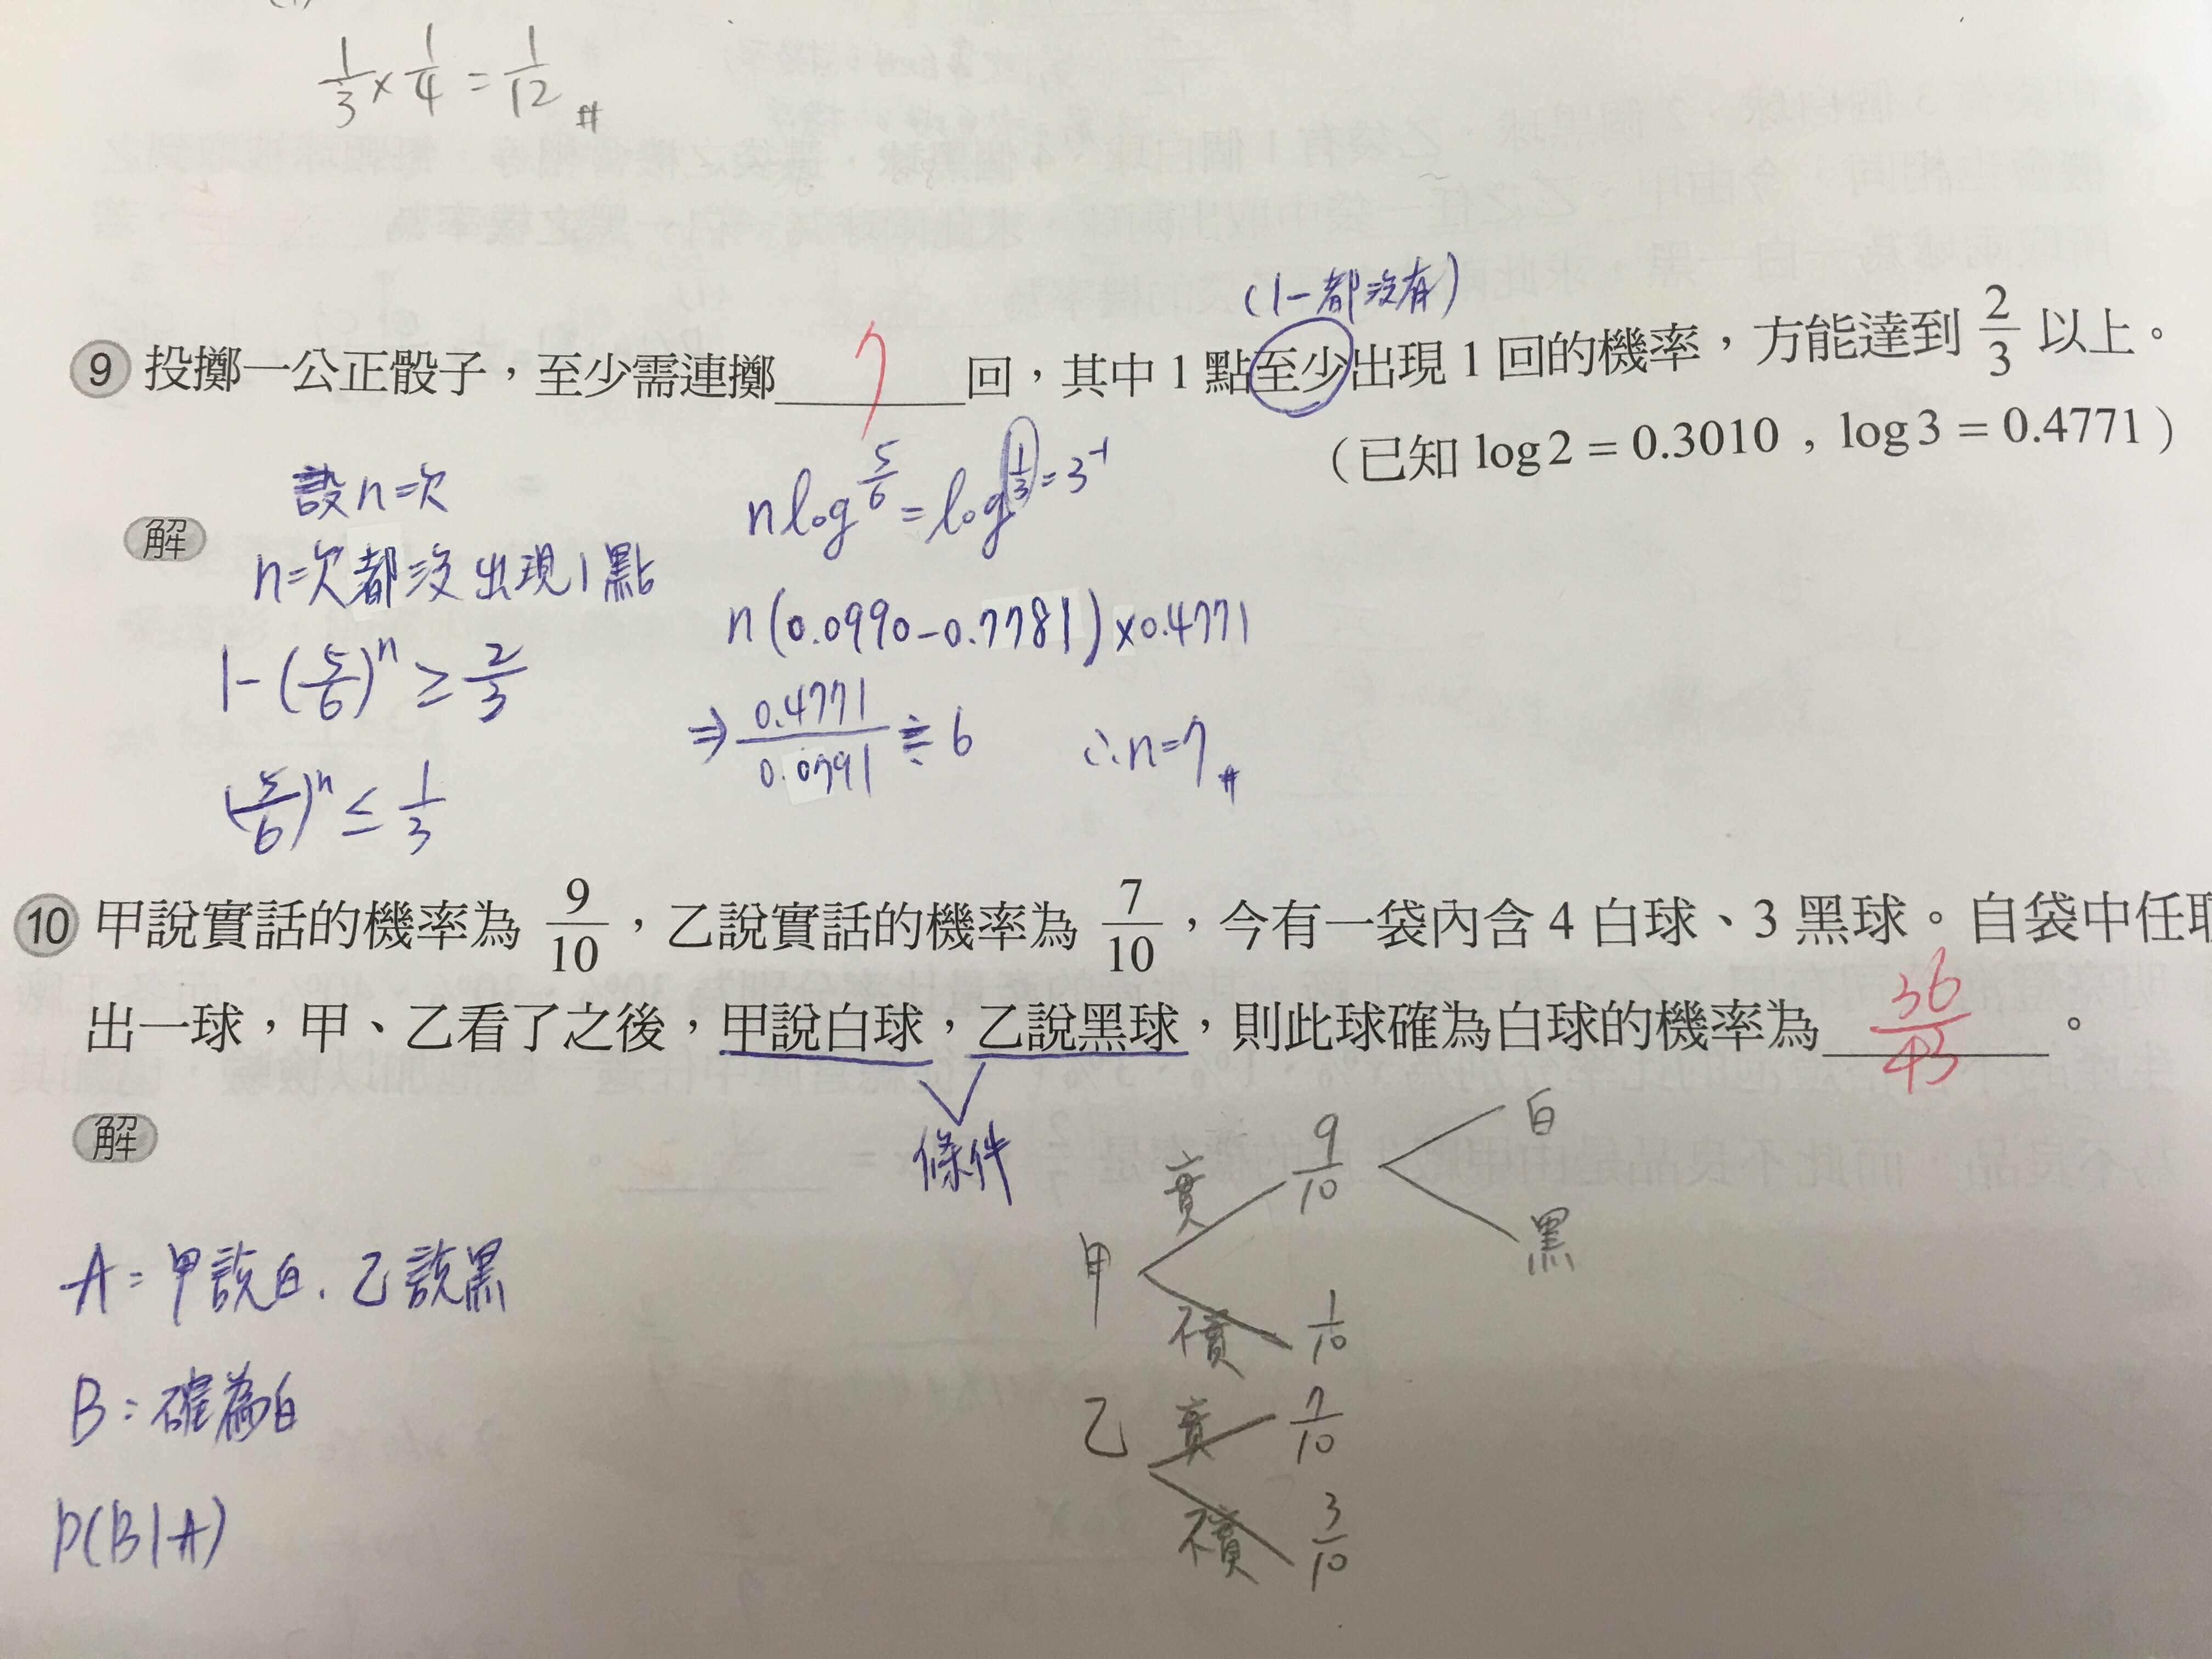 1/3 × 1/4 = 1/12 #
(1-都沒有)
9 投擲一公正骰子，至少需連擲 7 回，其中 1 點至少出現 1 回的機率，方能達到 2/3 以上。
（已知 log 2 = 0.3010，log 3 = 0.4771）
解
設n=次
n=次都沒出現1點
1-(5/6)^n ≥ 2/3
(5/6)^n ≤ 1/3
n log 5/6 = log 1/3 = 3^-1
n(0.0990-0.7781)×0.4771
⇒ 0.4771/0.0791 ≒ 6 ∴n=7 #
10 甲說實話的機率為 9/10，乙說實話的機率為 7/10，今有一袋內含 4 白球、3 黑球。自袋中任取
出一球，甲、乙看了之後，甲說白球，乙說黑球，則此球確為白球的機率為 36/43 。
條件
解
A=甲說白、乙說黑
B=確為白
P(B|A)
甲 實 9/10 白
黑
不實 1/10
乙 實 7/10
不實 3/10